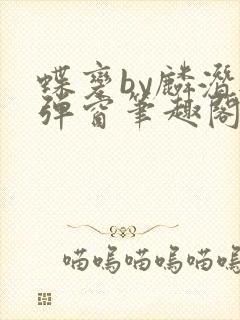 蝶变by麟潜无
弹窗笔趣阁
喵呜喵呜喵呜